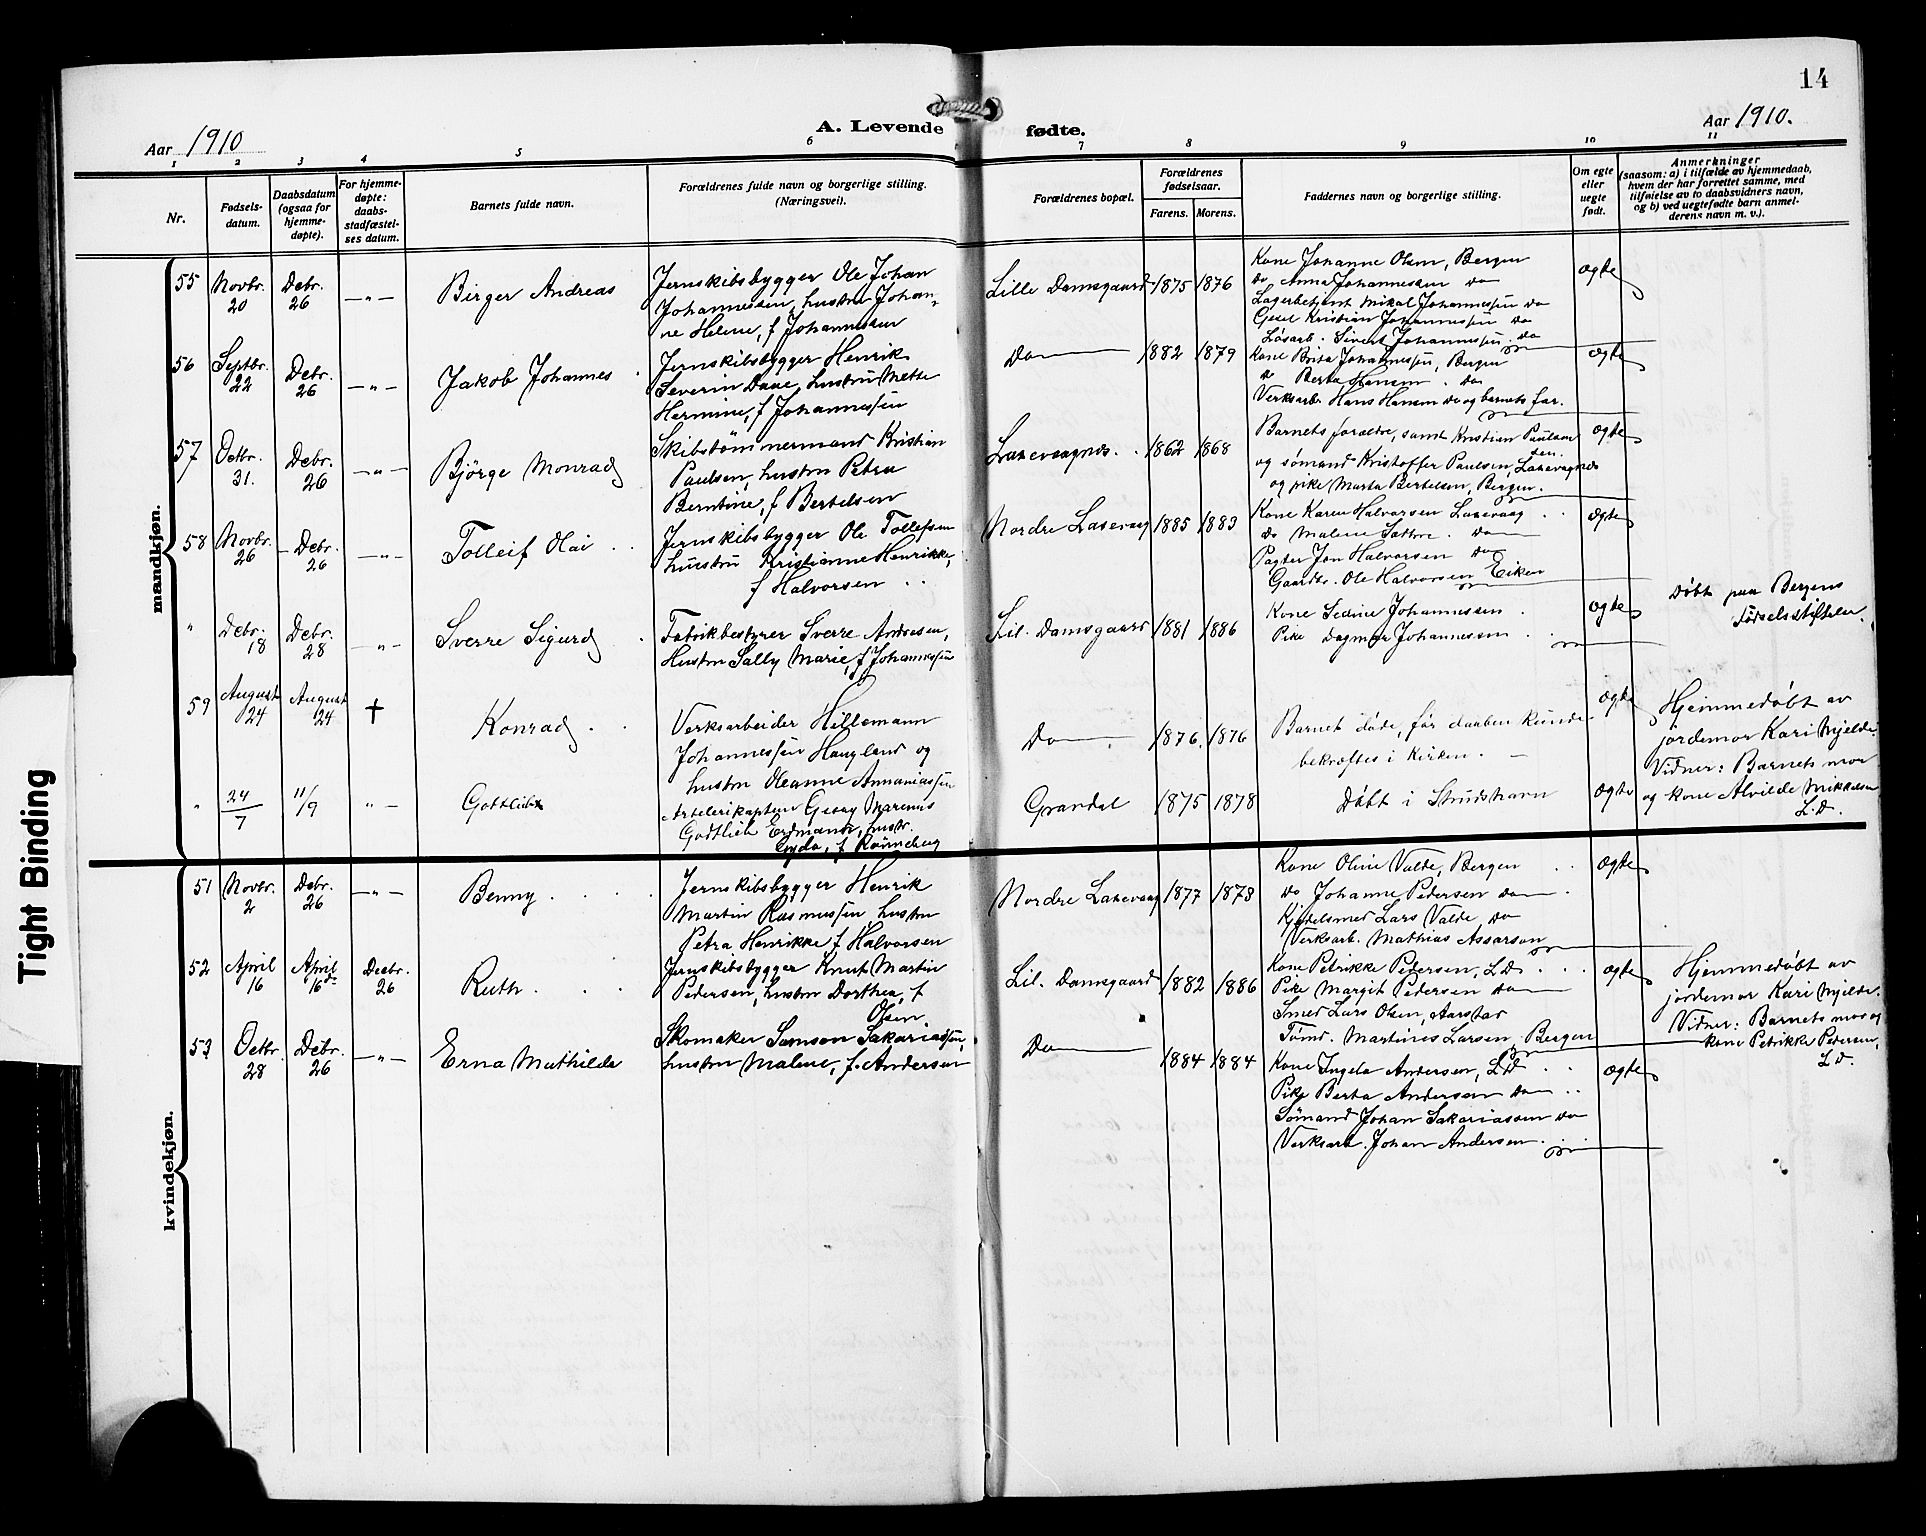 14
Aar 1910
A. Levende fødte.
Aar 1910.
1 2 3 4 5 6 7 8 9 10 11
Nr.
Fødsels-
datum.
Daabsdatum
(ogsaa for
hjemme-
døpte).
For hjemme-
døpte:
daabs-
stadfæstel-
ses datum.
Barnets fulde navn.
Forældrenes fulde navn og borgerlige stilling.
(Næringsvei).
Forældrenes bopæl.
Forældrenes
fødselsaar.
Farens. Morens.
Faddernes navn og borgerlige stilling.
Om egte
eller
uegte
født.
Anmerkninger
(saasom: a) i tilfælde av hjemmedaab,
hvem der har forrettet samme, med
tilføielse av to daabsvidners navn,
og b) ved uegtefødte barn anmel-
derens navn m. v.).
mandkjøn.
55 Novbr. 20 Debr. 26 —„— Birger Andreas
Jernskibsbygger Ole Johan
Johannessen, hustru Johan-
ne Helene, f. Johannessen
Lille Damsgaard 1875 1876
Kone Johanne Olsen, Bergen
do Anna Johannessen do
Lagerbetjent Mikal Johannessen do
Gesel Kristian Johannessen do
Løsarb. Sivert Johannessen do
ogte
56 Septbr. 22 Debr. 26 —„— Jakob Johannes
Jernskibsbygger Henrik
Severin Daae, hustru Mette
Hermine, f Johannessen
Do 1882 1879
Kone Brita Johannessen, Bergen
do Berta Hansen do
Verksarb. Hans Hansen do og barnets far.
ogte
57 Octbr. 31. Debr. 26 —„— Björge Monrad
Skibstømmermand Kristian
Paulsen, hustru Petra
Berntine, f Bertelsen
Laxevaagnes. 1862 1868
Barnets forældre, samt Kristian Paulsen
og sømand Kristoffer Paulsen, Laxevagnes
og pike Marta Bertelsen, Bergen.
ogte
58 Novbr. 26 Debr. 26 —„— Tolleif Olai
Jernskibsbygger Ole Tollefsen
hustru Kristianne Henrikke,
f Halvorsen
Nordre Laxevaag 1885 1883
Kone Karen Halvorsen Laxevaag
do Malene Sættre do
Pagter Jon Halvorsen do
Gaardbr. Ole Halvorsen Eiken
ogte
„ Debr. 18 Debr. 28 —„— Sverre Sigurd
Fabrikbestyrer Sverre Andresen,
Hustru Sally Marie, f Johannessen
Lil. Damsgaard 1881 1886
Kone Sedine Johannessen
Pike Dagmar Johannessen
ogte
Døbt paa Bergens
Fødselsstiftelse.
59 August 24 August 24 † Konrad
Verksarbeider Hillemann
Johannessen Haugland og
hustru Oleanne Annaniassen
Do 1876. 1876
Barnet døde, før daaben kunde
bekræftes i Kirken.
ogte
Hjemmedøbt av
jordemor Kari Mjelde
Vidner: Barnets mor
og kone Alvilde Mikkelsen
L.D.
„ 24/7 11/9 „— Gottlieb
Artelerikaptein Georg Marenius
Gottlieb Erdmann, hustr.
Gyda, f Rönneberg
Gravdal 1875 1878
Døbt i Strudshavn
ogte
kvindekjøn.
51 Novbr. 2 Debr. 26 —„— Benny
Jernskibsbygger Henrik
Martin Rasmussen hustru
Petra Henrikke f Halvorsen
Nordre Laxevaag 1877 1878
Kone Oline Valde, Bergen
do Johanne Pedersen do
Kjedelsmed Lars Valde do
Verksarb. Mathias Assarson
ogte
52 April 16 April 16de Decbr. 26 Ruth
Jernskibsbygger Knut Martin
Pedersen, hustru Dorthea, f
Olsen
Lil. Damsgaard 1882 1886
Kone Petrikke Pedersen, L.D
Pike Margit Pedersen do
Smed Lars Olsen, Aarstad
Tømd. Martines Larsen, Bergen
ogte
Hjemmedøbt av
jordemor Kari Mjelde.
Vidner: Barnets mor og
kone Petrikke Pedersen,
L.D.
53 Octbr. 28 Debr. 26 —„— Erna Mathilde
Skomaker Samson Sakariassen,
hustru Malene, f. Andersen
Do 1884 1884
Kone Ingela Andersen, L.D
Pike Berta Andersen do
Sømand Johan Sakariassen do
Verksarb. Johan Andersen.
ogte
Tight Binding